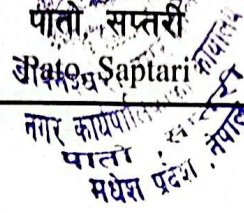 पातो, सप्तरी
Pato, Saptari
नगर कार्यपालिका कार्यालय
पातो, सप्तरी
मधेश प्रदेश, नेपाल